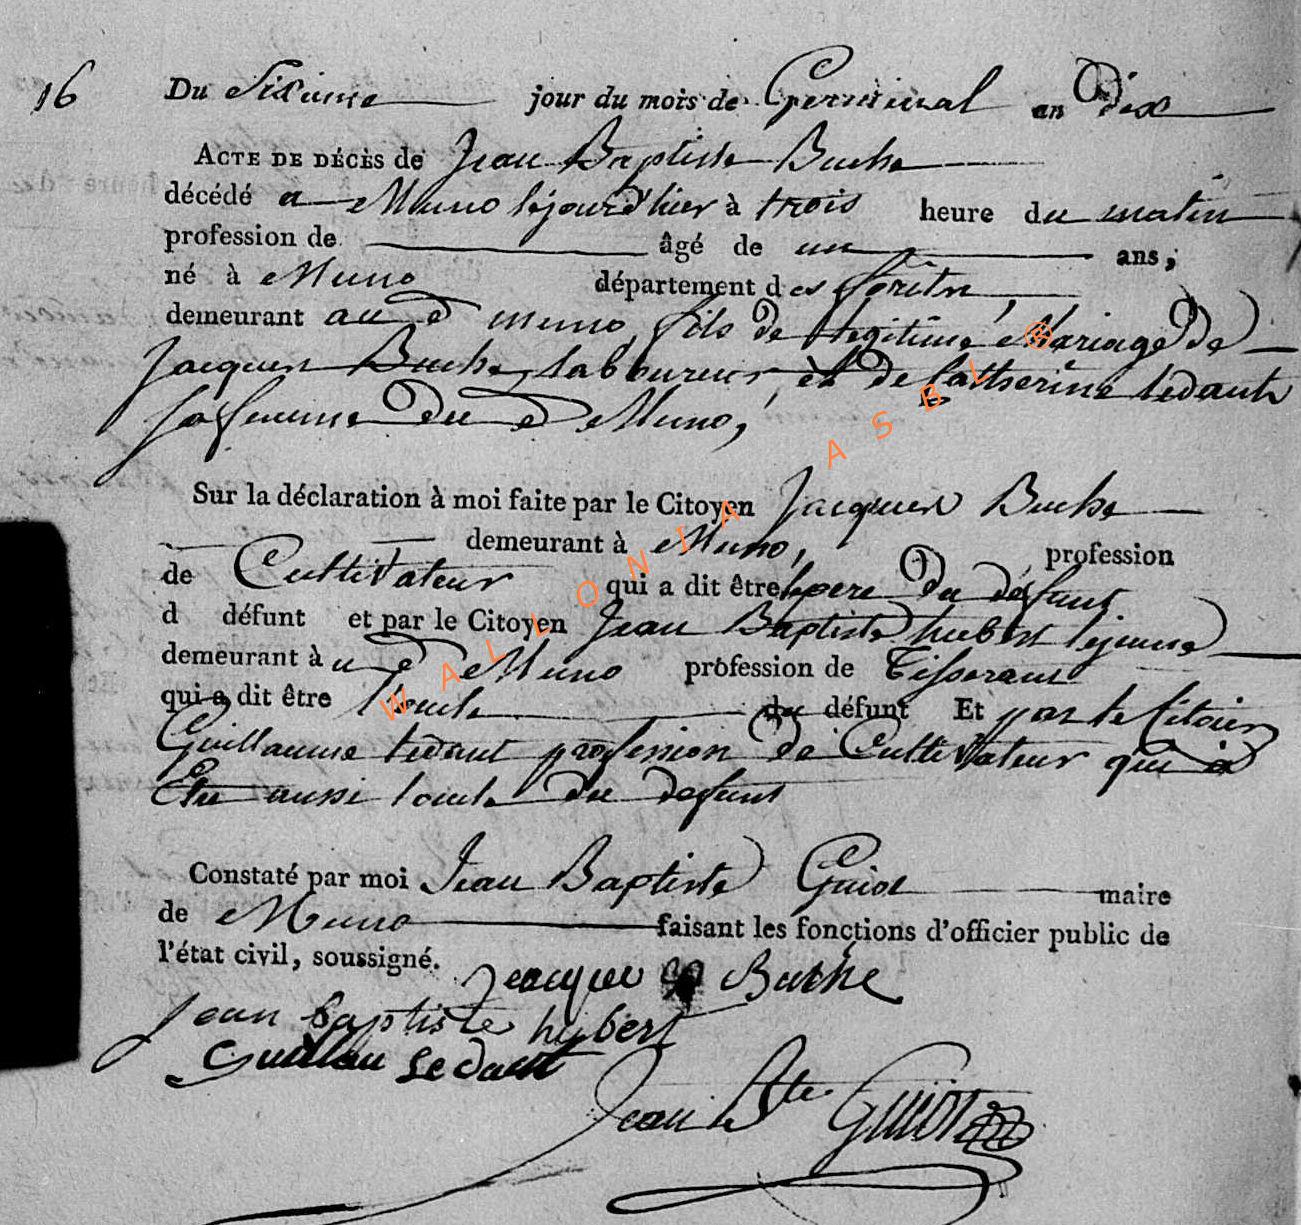 16 Du Sixieme jour du mois de Germinal an Dix
ACTE DE DÉCÈS de Jean Baptiste Buche
décédé a Muno lejourd'hier à trois heure du matin
profession de âgé de un ans,
né à Muno département des forêts
demeurant au d muno, fils de legitime Mariage De
Jacques Buche, labboureur et De Catherine ledant
sa femme Du d Muno,
Sur la déclaration à moi faite par le Citoyen Jacques Buche
demeurant à Muno, profession
de Cultivateur qui a dit être le pere Du defunt
d défunt et par le Citoyen Jean Baptiste hubert lejeune
demeurant à u d Muno profession de Tisserant
qui a dit être l'oncle du défunt Et par le Citoien
Guillaume ledant profession De Cultivateur qui a
Etre aussi l'oncle du defunt
Constaté par moi Jean Baptiste Guiot maire
de Muno faisant les fonctions d'officier public de
l'état civil, soussigné. Jacque Buche
Jean baptiste hubert
Guillau Ledant
Jean Bte Guiot
WALLONIA ASBL ®